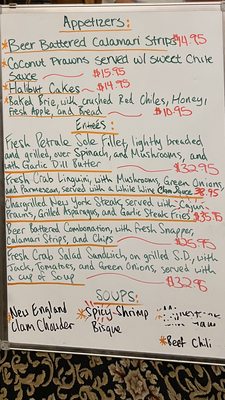 Appetizers:
*Beer Battered Calamari Strips $14.95
*Coconut Prawns served w/ sweet Chile
Sauce $15.95
*Halibut Cakes $14.95
*Baked Brie, with crushed Red Chiles, Honey,
Fresh Apple, and Bread $16.95
Entrées:
Fresh Petrale Sole Fillet, lightly breaded
and grilled, over Spinach, and Mushrooms, and
with Garlic Dill Butter $32.95
Fresh Crab Linguini, with Mushrooms, Green Onions
and Parmesean, served with a White Wine Clam Sauce
Chargrilled New York Steak, served with Cajun
Prawns, Grilled Asparagus, and Garlic Steak Fries $35.95
Beer Battered Combination, with fresh Snapper,
Calamari Strips, and Chips $25.95
Fresh Crab Salad Sandwich, on grilled S.D., with
Jack, Tomatoes, and Green Onions, served with
a cup of Soup $32.95
SOUPS:
*New England
Clam Chowder
*Spicy Shrimp
Bisque
*Beef Chili